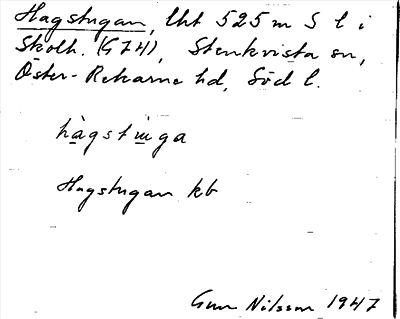 Hagstugan, lht 525 m S l i
Skolh. (G7H), Stenkvista sn,
Öster-Rekarne hd, Söd l.
hàgstuga
Hagstugan kb
Gun Nilsson 1947